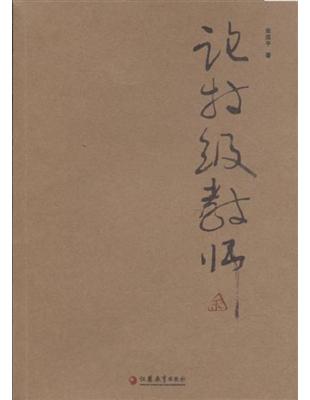 著
论特级教师
江苏教育出版社